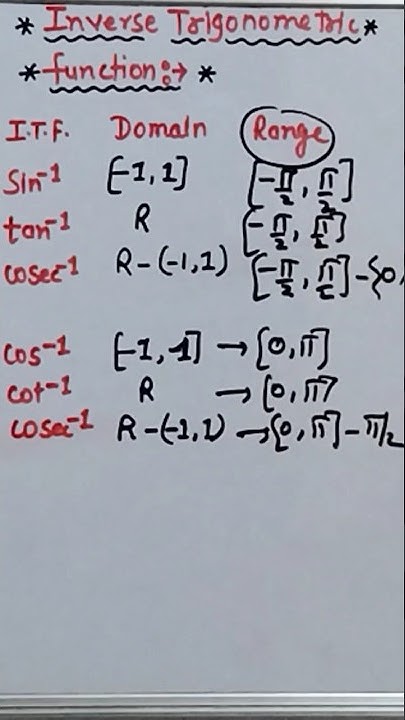 * Inverse Trigonometric *
* function :→ *
I.T.F. Domain Range
Sin⁻¹ [-1, 1] [-π/2, π/2]
tan⁻¹ R [-π/2, π/2]
cosec⁻¹ R - (-1, 1) [-π/2, π/2] - {0,
cos⁻¹ [-1, 1] → [0, π]
cot⁻¹ R → [0, π]
cosec⁻¹ R - (-1, 1) → [0, π] - π/2